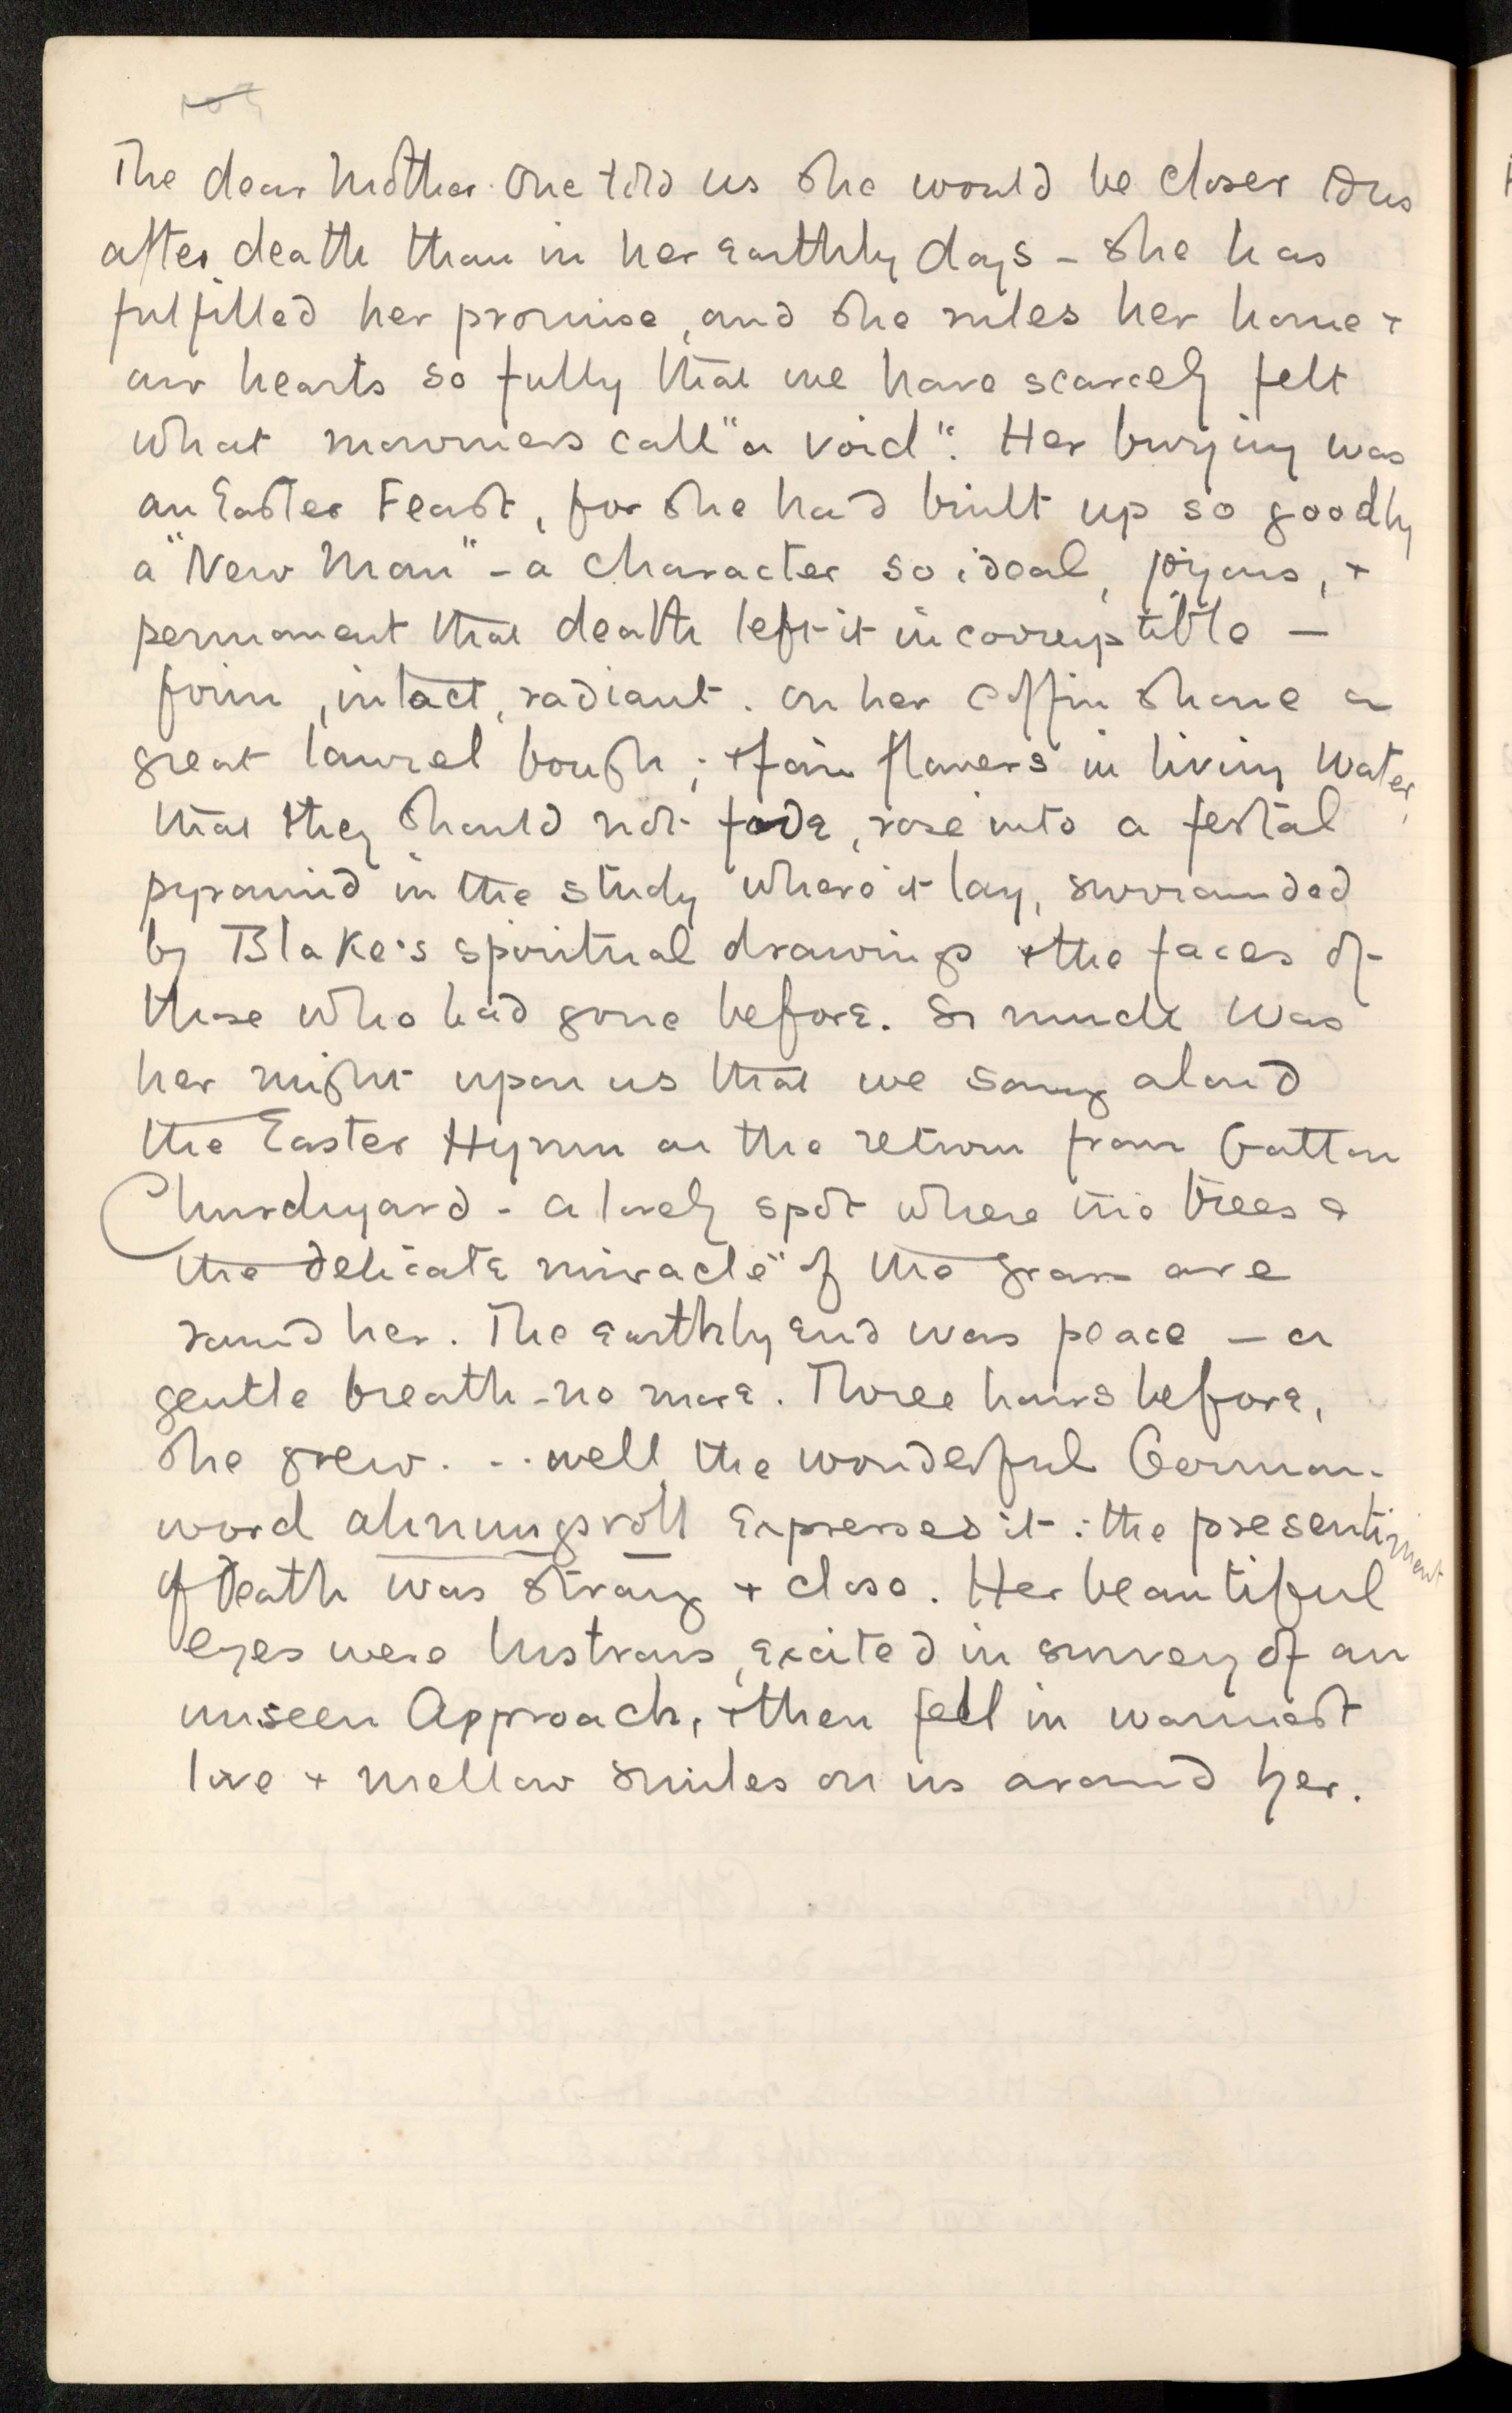 The dear Mother One told us she would be closer to us
after death than in her earthly days - she has
fulfilled her promise, and she rules her home +
our hearts so fully that we have scarcely felt
what mourners call "a void". Her burying was
an Easter Feast, for she had built up so goodly
a "New Man" - a character so ideal, joyous, +
permanent that death left it incorruptible —
firm, intact, radiant. On her coffin shone a
great laurel bough; + fair flowers in living water,
that they should not fade, rose into a festal
pyramid in the study where it lay, surrounded
by Blake's spiritual drawings + the faces of
those who had gone before. So much was
her might upon us that we sang aloud
the Easter Hymn on the return from Gatton
Churchyard - a lovely spot where the trees &
the delicate miracle" of the grass are
round her. The earthly end was peace — a
gentle breath - no more. Three hours before,
she grew... well, the wonderful German
word ahnungsvoll expresses it: the presentiment
of Death was strong + close. Her beautiful
eyes were lustrous, excited in survey of an
unseen Approach, + then fell in warmest
love + mellow smiles on us around her.